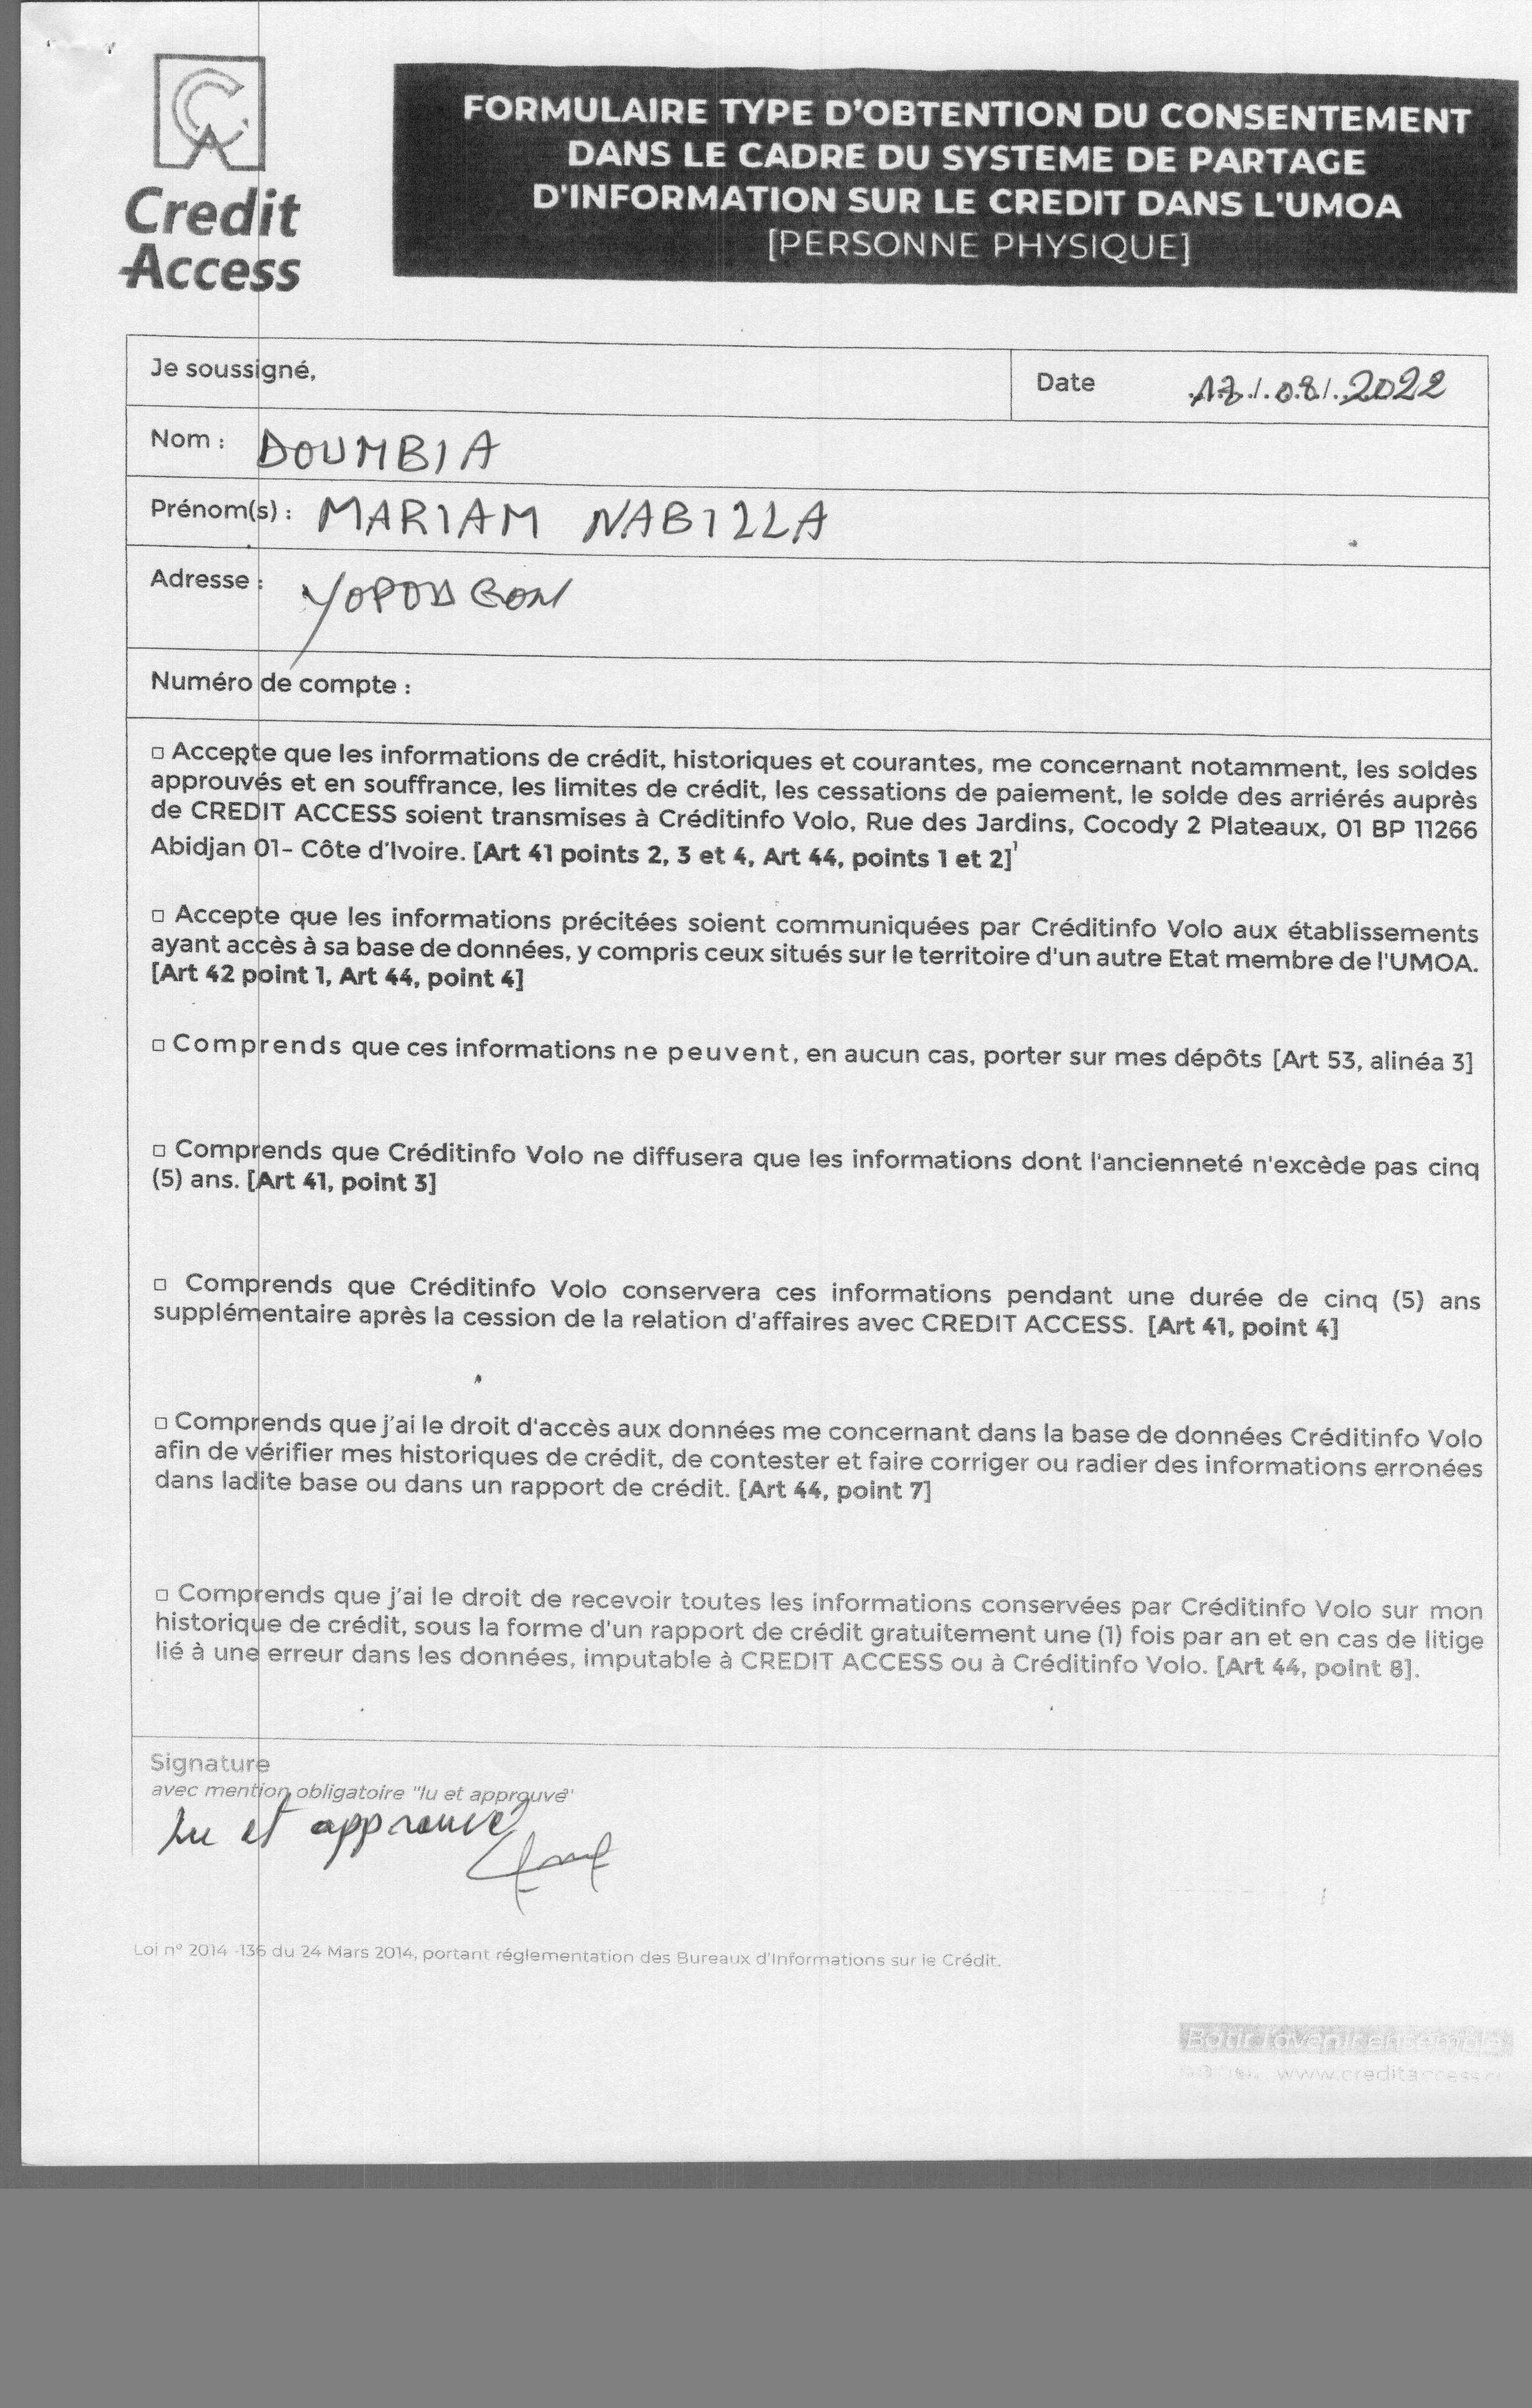 Credit
Access
FORMULAIRE TYPE D'OBTENTION DU CONSENTEMENT
DANS LE CADRE DU SYSTEME DE PARTAGE
D'INFORMATION SUR LE CREDIT DANS L'UMOA
[PERSONNE PHYSIQUE]
Je soussigné,
Date 17/08/2022
Nom : DOUMBIA
Prénom(s) : MARIAM NABILLA
Adresse : YOPOUGON
Numéro de compte :
□ Accepte que les informations de crédit, historiques et courantes, me concernant notamment, les soldes
approuvés et en souffrance, les limites de crédit, les cessations de paiement, le solde des arriérés auprès
de CREDIT ACCESS soient transmises à Créditinfo Volo, Rue des Jardins, Cocody 2 Plateaux, 01 BP 11266
Abidjan 01- Côte d'Ivoire. [Art 41 points 2, 3 et 4, Art 44, points 1 et 2]¹
□ Accepte que les informations précitées soient communiquées par Créditinfo Volo aux établissements
ayant accès à sa base de données, y compris ceux situés sur le territoire d'un autre Etat membre de l'UMOA.
[Art 42 point 1, Art 44, point 4]
□ Comprends que ces informations ne peuvent, en aucun cas, porter sur mes dépôts [Art 53, alinéa 3]
□ Comprends que Créditinfo Volo ne diffusera que les informations dont l'ancienneté n'excède pas cinq
(5) ans. [Art 41, point 3]
□ Comprends que Créditinfo Volo conservera ces informations pendant une durée de cinq (5) ans
supplémentaire après la cession de la relation d'affaires avec CREDIT ACCESS. [Art 41, point 4]
□ Comprends que j'ai le droit d'accès aux données me concernant dans la base de données Créditinfo Volo
afin de vérifier mes historiques de crédit, de contester et faire corriger ou radier des informations erronées
dans ladite base ou dans un rapport de crédit. [Art 44, point 7]
□ Comprends que j'ai le droit de recevoir toutes les informations conservées par Créditinfo Volo sur mon
historique de crédit, sous la forme d'un rapport de crédit gratuitement une (1) fois par an et en cas de litige
lié à une erreur dans les données, imputable à CREDIT ACCESS ou à Créditinfo Volo. [Art 44, point 8].
Signature
avec mention obligatoire "lu et approuvé"
Lu et approuvé
Loi n° 2014 -136 du 24 Mars 2014, portant réglementation des Bureaux d'Informations sur le Crédit.
Bâtir l'avenir ensemble
www.creditaccess.ci